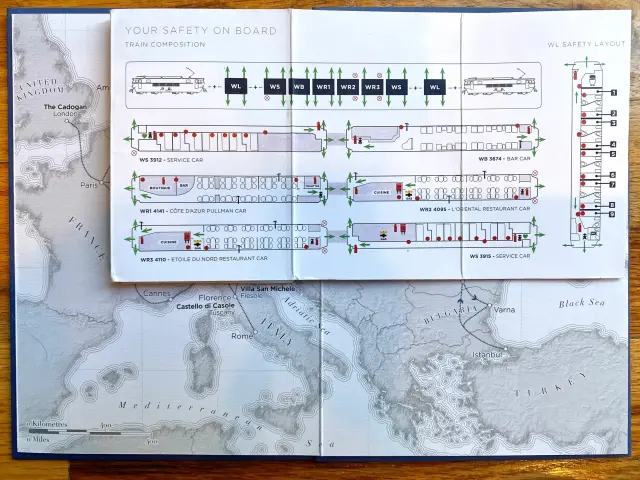 YOUR SAFETY ON BOARD
TRAIN COMPOSITION
WL SAFETY LAYOUT
WL WS WB WR1 WR2 WR3 WS WL
WS 3912 - SERVICE CAR
WB 3674 - BAR CAR
BOUTIQUE BAR
CUISINE
WR1 4141 - CÔTE D'AZUR PULLMAN CAR
WR2 4095 - L'ORIENTAL RESTAURANT CAR
CUISINE
WR3 4110 - ETOILE DU NORD RESTAURANT CAR
WS 3915 - SERVICE CAR
1
2
3
4
5
6
7
8
9
UNITED
KINGDOM
The Cadogan
London
Paris
FRANCE
Cannes
Florence
Villa San Michele
Fiesole
Castello di Casole
Tuscany
Rome
ITALY
Adriatic Sea
BULGARIA
Varna
Black Sea
Istanbul
TURKEY
Mediterranean
Sea
0 Kilometres 400
0 Miles 400